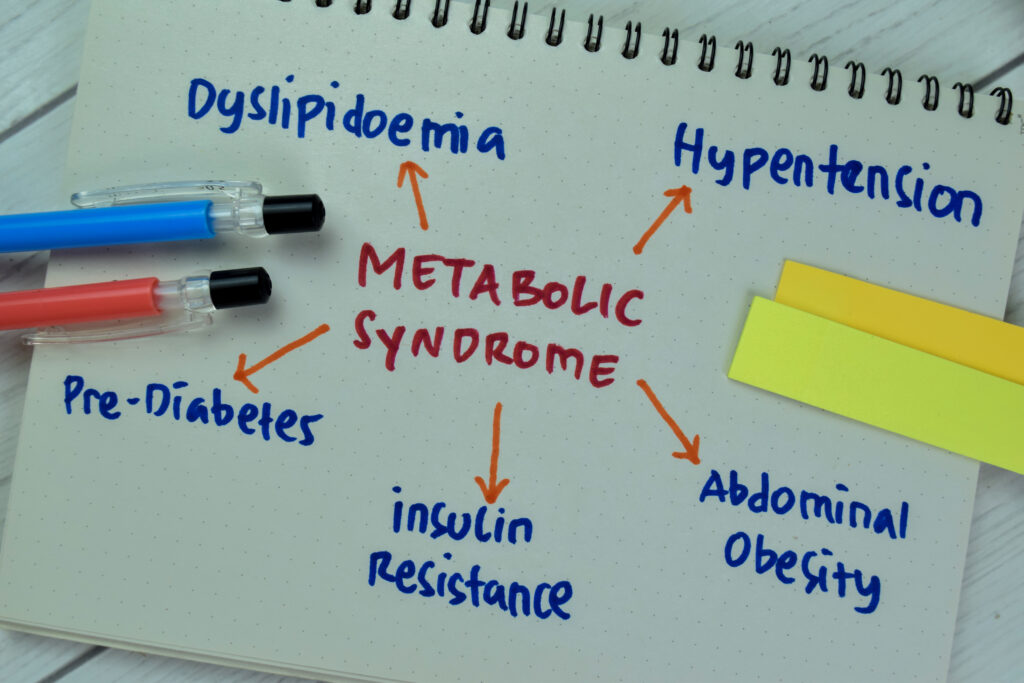 Dyslipidoemia
Hypentension
METABOLIC
SYNDROME
Pre-Diabetes
insulin
Resistance
Abdominal
Obesity